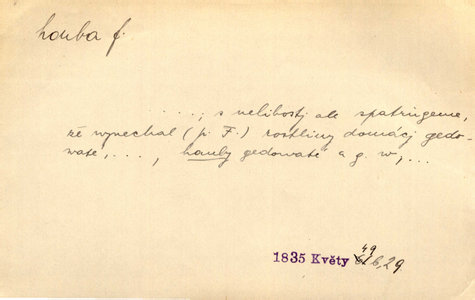 houba f.
......; s nelibostj ale spatřugeme,
že wynechal (p. F.) rostliny domácj gedo-
waté, . . . , hauby gedowaté a g. w; ...
1835 Květy 49
6,29